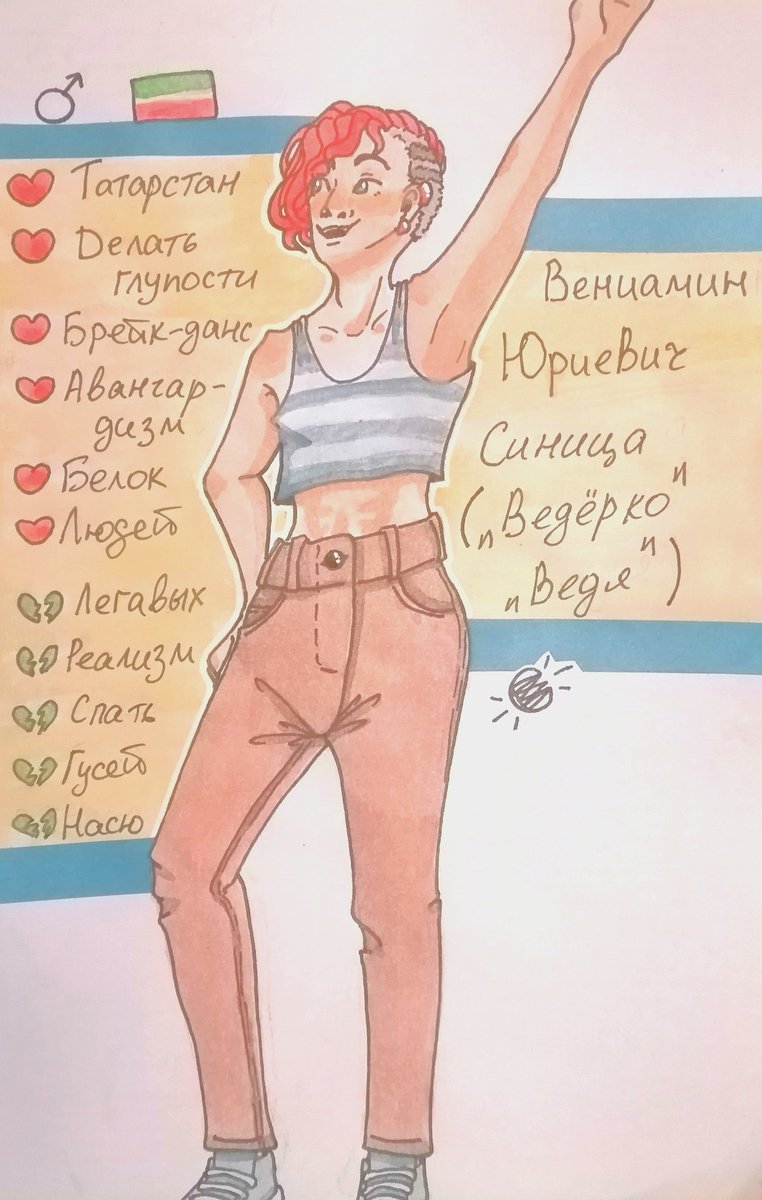 Татарстан
Делать
глупости
Брейк-данс
Авангар-
дизм
Белок
Людей
Легавых
Реализм
Спать
Гусей
Насю
Вениамин
Юриевич
Синица
(„Ведёрко"
„Ведя")